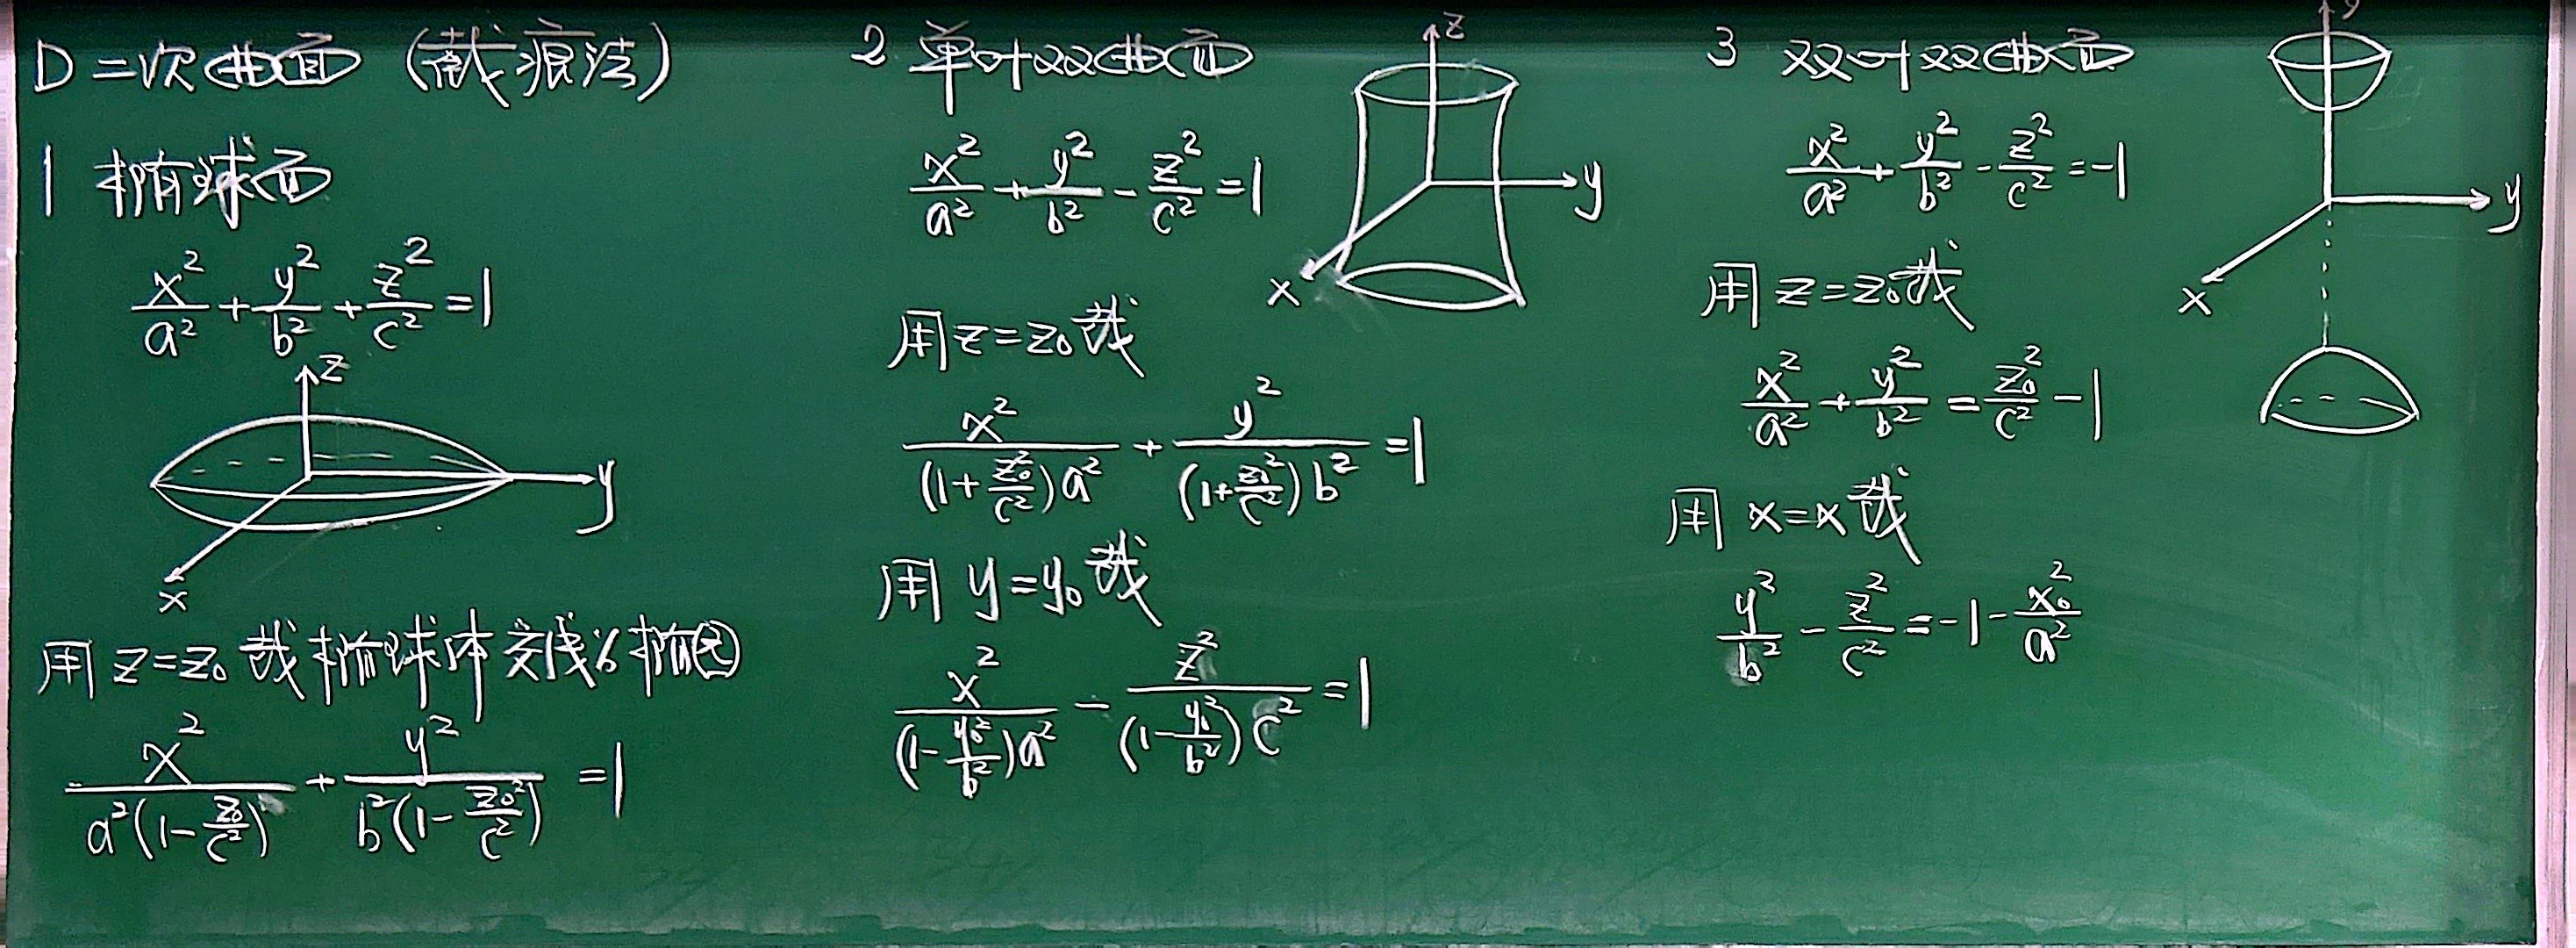 D 二次曲面 (截痕法)
1 椭球面
x²/a² + y²/b² + z²/c² = 1
z
y
x
用 z=z₀ 截椭球体交线为椭圆
x²/(a²(1-z₀/c²)) + y²/(b²(1-z₀²/c²)) = 1
2 单叶双曲面
x²/a² + y²/b² - z²/c² = 1
z
y
x
用 z=z₀ 截
x²/((1+z₀²/c²)a²) + y²/((1+z₀²/c²)b²) = 1
用 y=y₀ 截
x²/((1-y₀²/b²)a²) - z²/((1-y₀²/b²)c²) = 1
3 双叶双曲面
x²/a² + y²/b² - z²/c² = -1
y
x
用 z=z₀ 截
x²/a² + y²/b² = z₀²/c² - 1
用 x=x 截
y²/b² - z²/c² = -1 - x₀²/a²